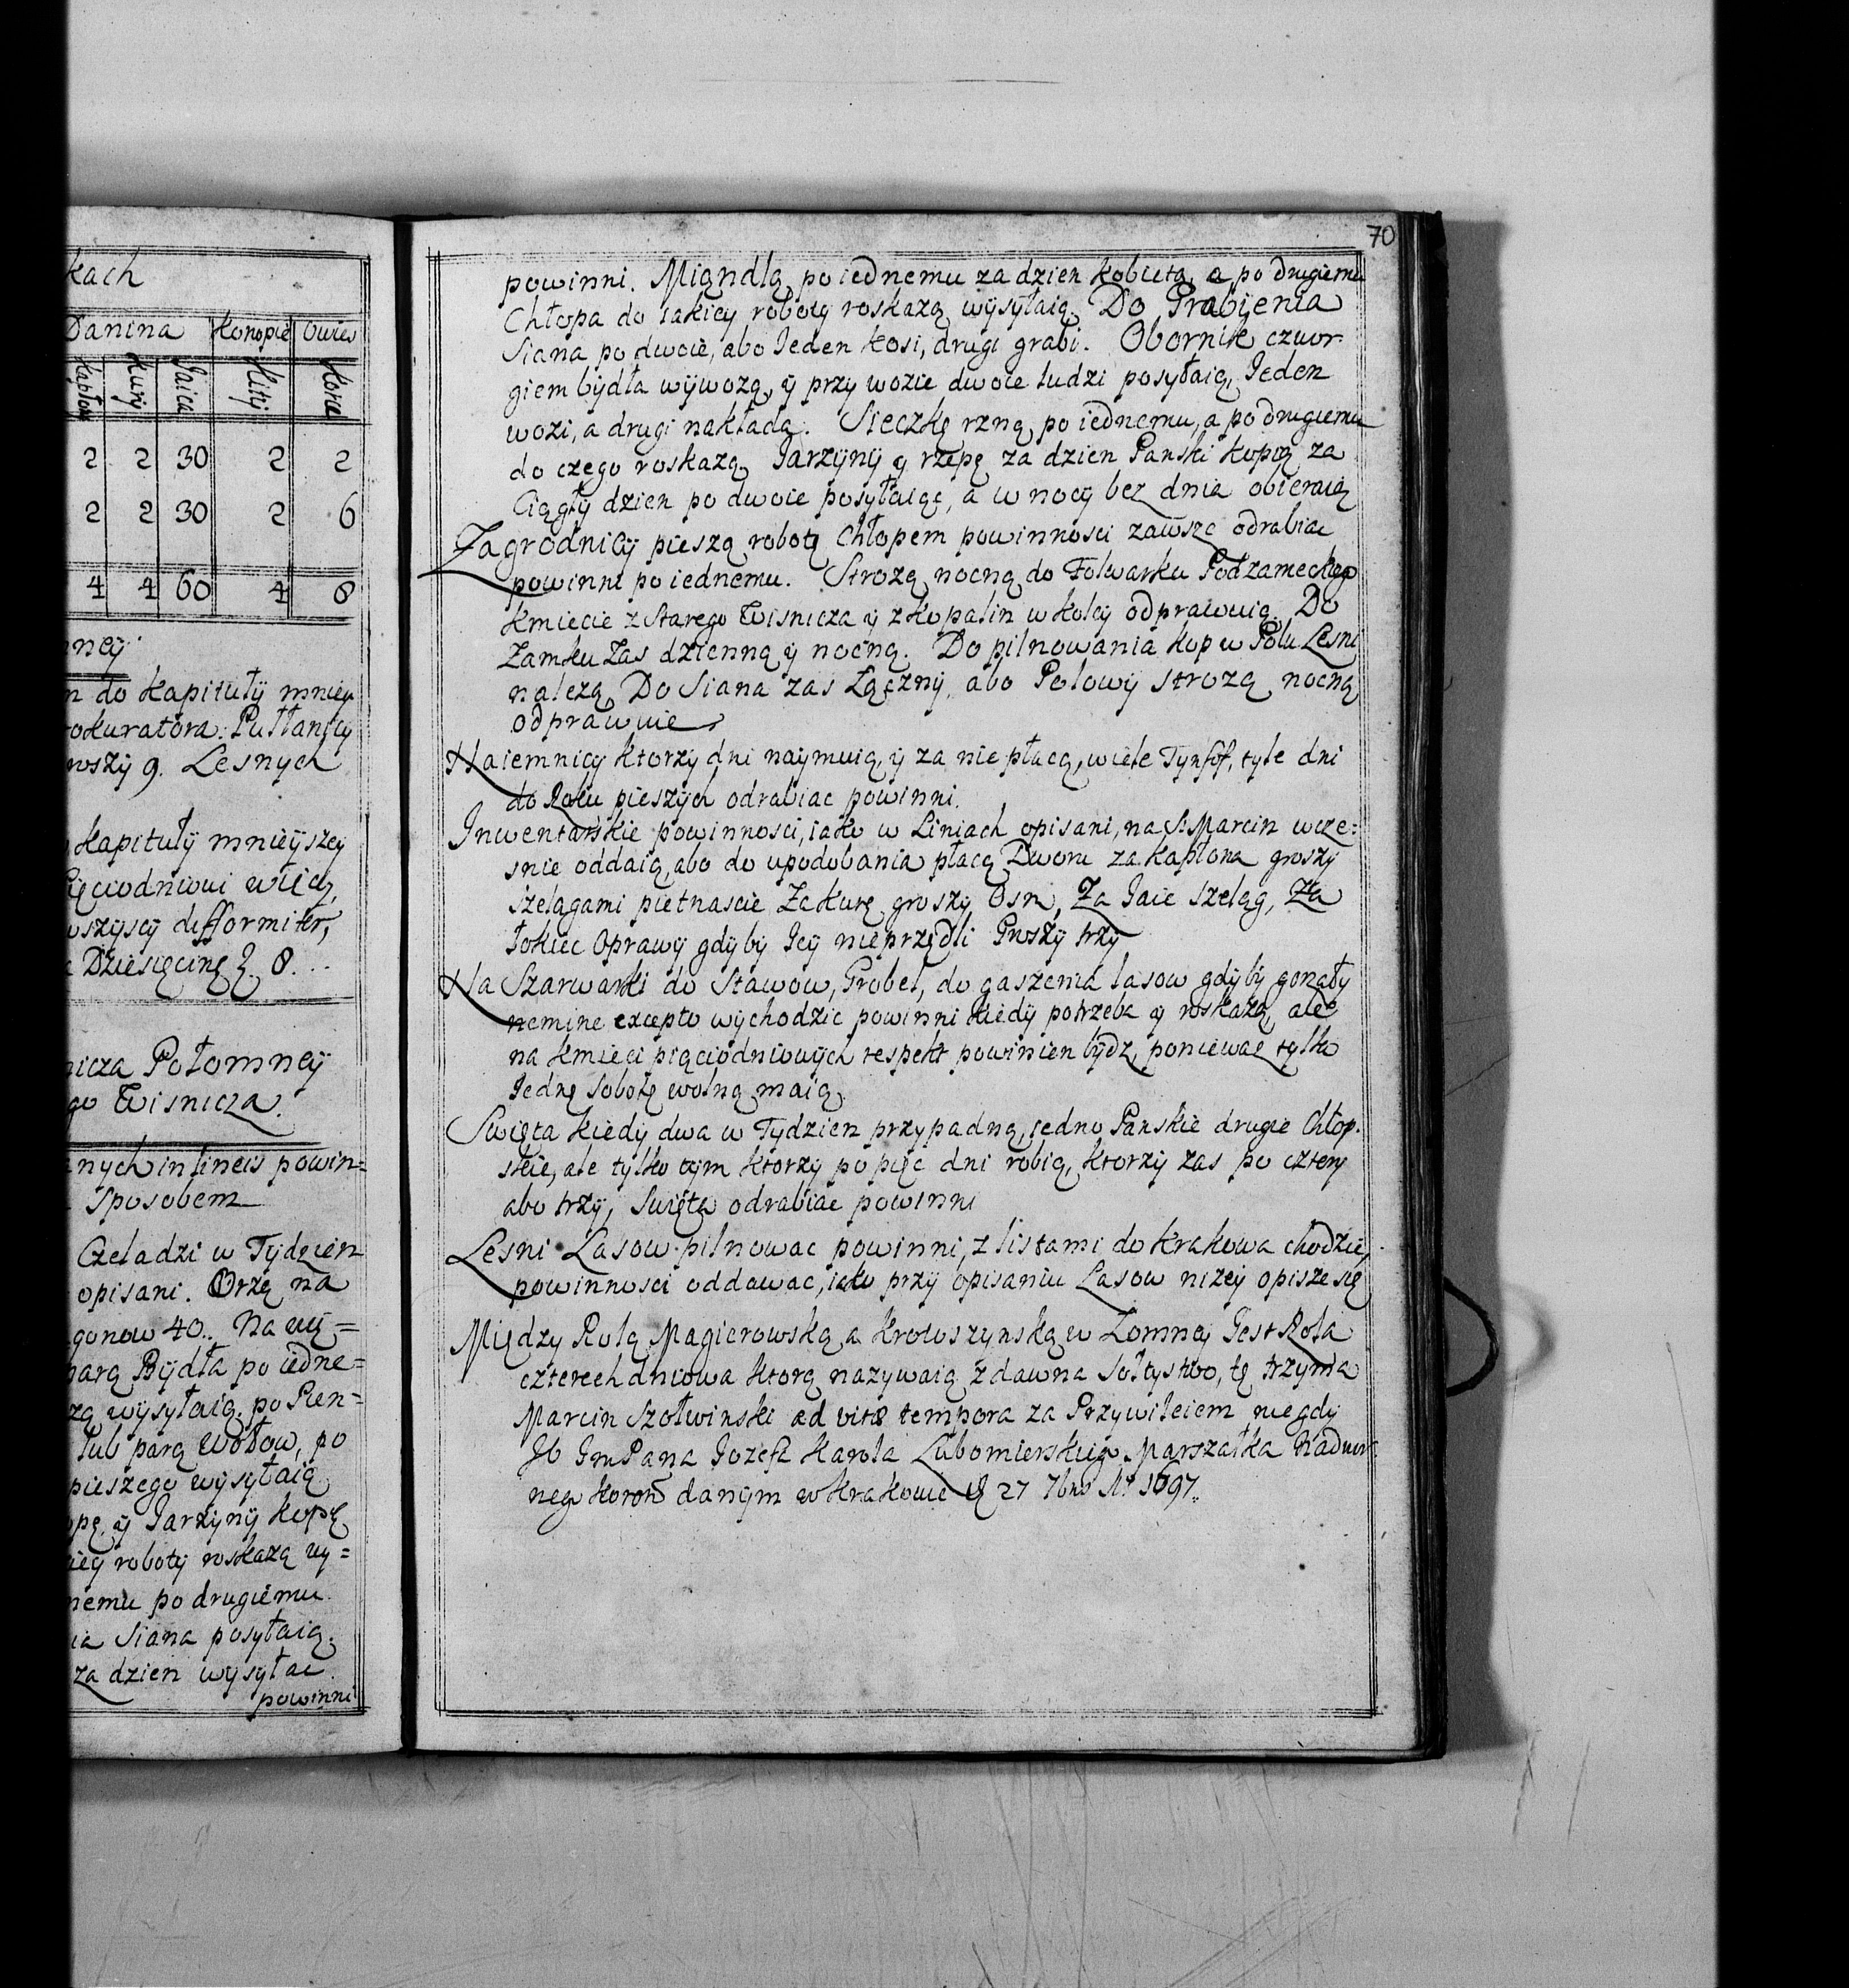 kach
Danina Konopie Owies
Kapłon Kury Jaica Kity Korce
2 2 30 2 2
2 2 30 2 6
4 4 60 4 8
mney
do Kapituły mniey
Pułtanicy
9. Lesnych
Kapituły mnieyszey
więcy
wszyscy difformiter,
Dziesięcinę 8...
nicza Połomney
go Wisnicza.
nych in lineis powin=
Sposobem
Czeladzi w Tydzien
opisani. Orzę na
gonow 40.. Na wy=
parą Bydła po iedne=
wysyłaią, po Pien=
lub parą Wołow, po
pieszego wysyłaią
y Jarzyny kopę
roboty roskazą wy=
nemu po drugiemu
Siana posyłaią.
za dzien wysyłac.
powinni
70
powinni. Miądlą po iednemu za dzien kobietą, a po drugiemu
Chłopa do iakiey roboty roskazą wysyłaią. Do Grabienia
Siana po dwoie, abo Jeden kosi, drugi grabi. Obornik czwor-
giem bydła wywozą, y przy wozie dwoie ludzi posyłaią, Jeden
wozi, a drugi nakłada. Sieczkę rzną po iednemu, a po drugiemu
do czego roskazą. Jarzyny y rzepę za dzien Panski kopią za
Ciągły dzien po dwoie posyłaiąc, a w nocy bez dnia obieraią
Zagrodnicy pieszą robotę Chłopem powinnosci zawsze odrabiac
powinni po iednemu. Strozą nocną do Folwarku Podzameckego
Kmiecie z Starego Wisnicza y z Kopalin w koley odprawuią. Do
Zamku Zas dzienną y nocną. Do pilnowania kop w Polu Lesni
nalezą, Do Siana zas Łączny, abo Polowy strozą nocną
odprawuie
Naiemnicy ktorzy dni naymuią, y za nie płacą, wiele Tynff, tyle dni
do Roku pieszych odrabiac powinni.
Inwentarskie powinnosci, iako w Liniach opisani, na S. Marcin wcze:
snie oddaią, abo do upodobania płacą Dworu za kapłona groszy
szelągami pietnascie Za kurę groszy Osm, Za Jaie szeląg, Za
Łokiec Oprawy gdyby Jey nieprzędli Groszy trzy
Na Szarwarki do Stawow, Grobel, do gaszenia lasow gdyby gorzały
nemine excepto wychodzic powinni kiedy potrzeba y roskazą, ale
na kmieci pięciodniowych respekt powinien bydz, poniewaz tylko
Jednę Sobotę wolną maią.
Swięta kiedy dwa w Tydzien przypadną, iedno Panskie drugie Chłop-
skie, ale tylko tym ktorzy po pięc dni robią, ktorzy zas po cztery
abo trzy, Swięta odrabiac powinni
Lesni Lasow pilnowac powinni, z listami do Krakowa chodzic,
powinnosci oddawac, iako przy opisaniu Lasow nizey opisze się
Między Rolą Magierowską a Krowszynską w Łomney Jest Rola
czterechdniowa ktorą nazywaią zdawna Sołtystwo, tę trzyma
Marcin Szołwinski ad vitæ tempora za Przywileiem niegdy
JO Jm Pana Jozefa Karola Lubomierskiego Marszałka Nadwor-
nego Koron danym w Krakowie D 27 7bris A 1697.